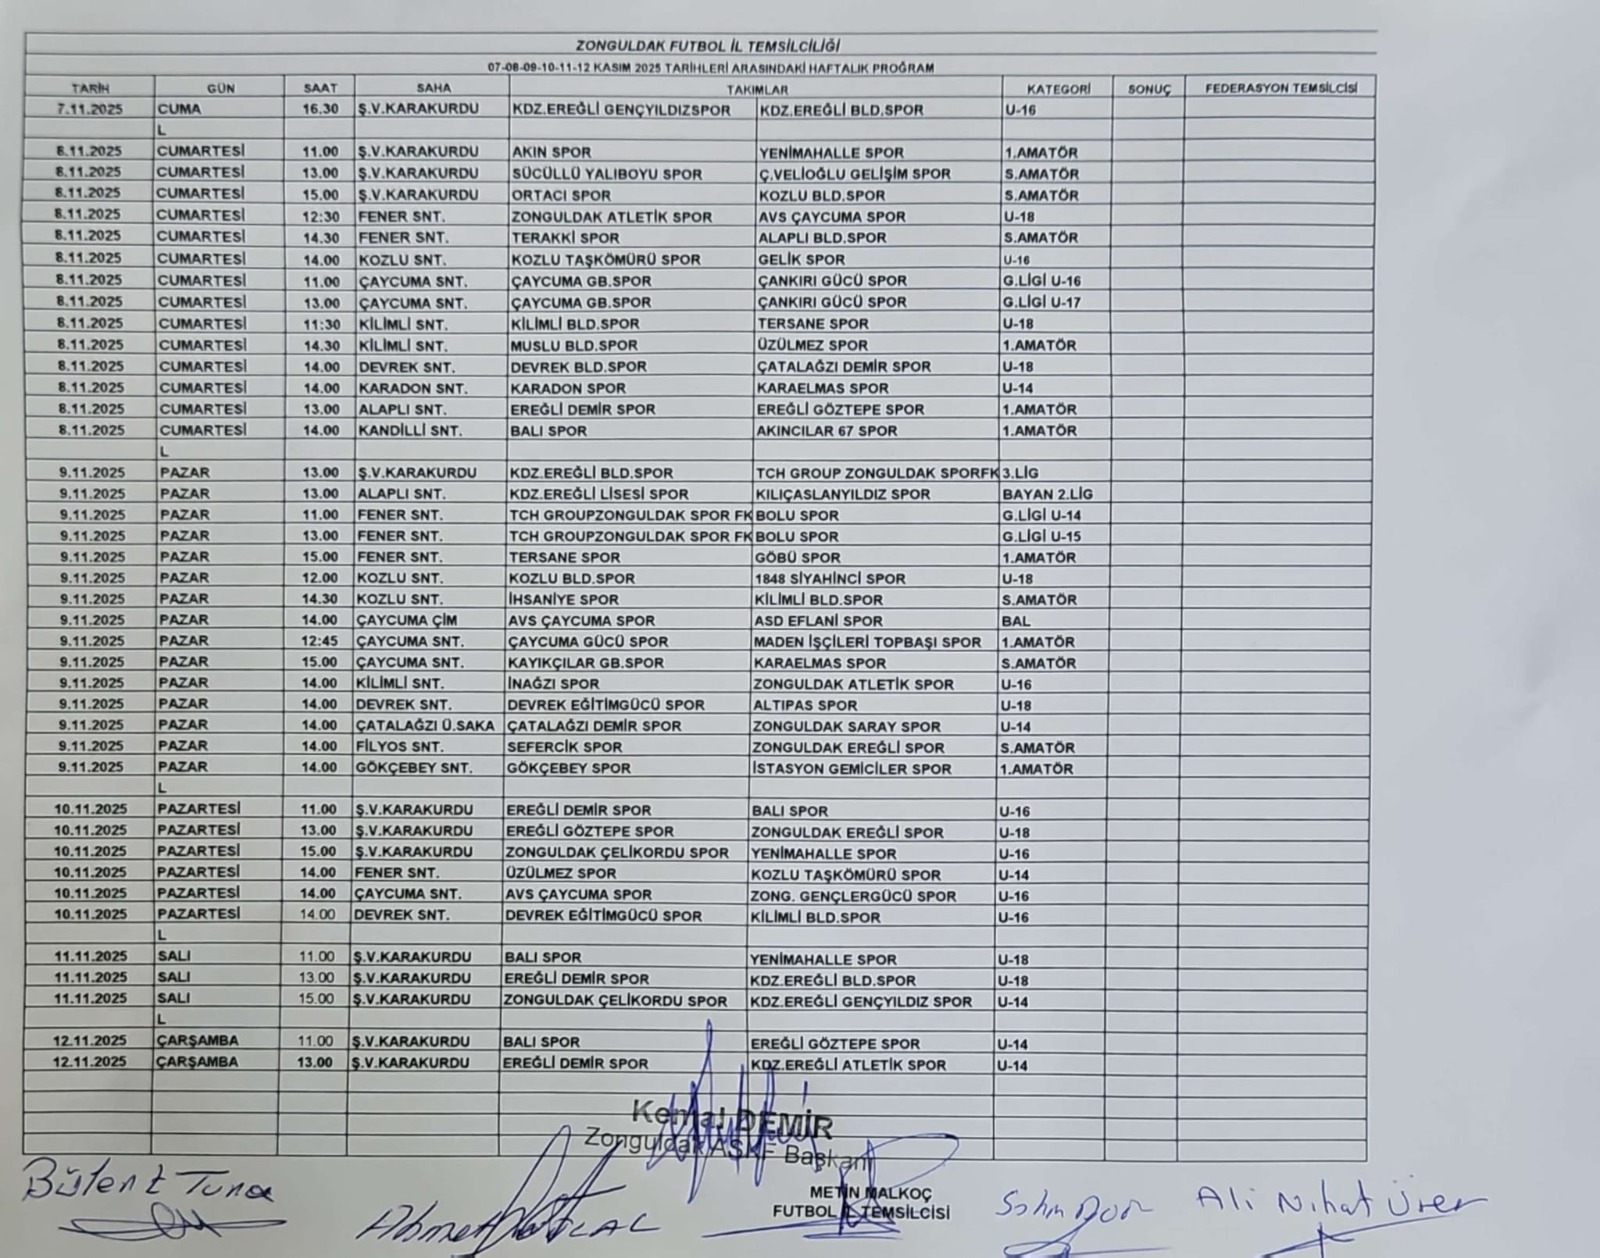 ZONGULDAK FUTBOL İL TEMSİLCİLİĞİ
07-08-09-10-11-12 KASIM 2025 TARİHLERİ ARASINDAKİ HAFTALIK PROGRAM
TARİH GÜN SAAT SAHA TAKIMLAR KATEGORİ SONUÇ FEDERASYON TEMSİLCİSİ
7.11.2025 CUMA 16.30 Ş.V.KARAKURDU KDZ.EREĞLİ GENÇYILDIZSPOR KDZ.EREĞLİ BLD.SPOR U-16
L
8.11.2025 CUMARTESİ 11.00 Ş.V.KARAKURDU AKIN SPOR YENİMAHALLE SPOR 1.AMATÖR
8.11.2025 CUMARTESİ 13.00 Ş.V.KARAKURDU SÜCÜLLÜ YALIBOYU SPOR Ç.VELİOĞLU GELİŞİM SPOR S.AMATÖR
8.11.2025 CUMARTESİ 15.00 Ş.V.KARAKURDU ORTACI SPOR KOZLU BLD.SPOR S.AMATÖR
8.11.2025 CUMARTESİ 12:30 FENER SNT. ZONGULDAK ATLETİK SPOR AVS ÇAYCUMA SPOR U-18
8.11.2025 CUMARTESİ 14.30 FENER SNT. TERAKKİ SPOR ALAPLI BLD.SPOR S.AMATÖR
8.11.2025 CUMARTESİ 14.00 KOZLU SNT. KOZLU TAŞKÖMÜRÜ SPOR GELİK SPOR U-16
8.11.2025 CUMARTESİ 11.00 ÇAYCUMA SNT. ÇAYCUMA GB.SPOR ÇANKIRI GÜCÜ SPOR G.LİGİ U-16
8.11.2025 CUMARTESİ 13.00 ÇAYCUMA SNT. ÇAYCUMA GB.SPOR ÇANKIRI GÜCÜ SPOR G.LİGİ U-17
8.11.2025 CUMARTESİ 11:30 KİLİMLİ SNT. KİLİMLİ BLD.SPOR TERSANE SPOR U-18
8.11.2025 CUMARTESİ 14.30 KİLİMLİ SNT. MUSLU BLD.SPOR ÜZÜLMEZ SPOR 1.AMATÖR
8.11.2025 CUMARTESİ 14.00 DEVREK SNT. DEVREK BLD.SPOR ÇATALAĞZI DEMİR SPOR U-18
8.11.2025 CUMARTESİ 14.00 KARADON SNT. KARADON SPOR KARAELMAS SPOR U-14
8.11.2025 CUMARTESİ 13.00 ALAPLI SNT. EREĞLİ DEMİR SPOR EREĞLİ GÖZTEPE SPOR 1.AMATÖR
8.11.2025 CUMARTESİ 14.00 KANDİLLİ SNT. BALI SPOR AKINCILAR 67 SPOR 1.AMATÖR
L
9.11.2025 PAZAR 13.00 Ş.V.KARAKURDU KDZ.EREĞLİ BLD.SPOR TCH GROUP ZONGULDAK SPORFK 3.LİG
9.11.2025 PAZAR 13.00 ALAPLI SNT. KDZ.EREĞLİ LİSESİ SPOR KILIÇASLANYILDIZ SPOR BAYAN 2.LİG
9.11.2025 PAZAR 11.00 FENER SNT. TCH GROUPZONGULDAK SPOR FK BOLU SPOR G.LİGİ U-14
9.11.2025 PAZAR 13.00 FENER SNT. TCH GROUPZONGULDAK SPOR FK BOLU SPOR G.LİGİ U-15
9.11.2025 PAZAR 15.00 FENER SNT. TERSANE SPOR GÖBÜ SPOR 1.AMATÖR
9.11.2025 PAZAR 12.00 KOZLU SNT. KOZLU BLD.SPOR 1848 SİYAHİNCİ SPOR U-18
9.11.2025 PAZAR 14.30 KOZLU SNT. İHSANİYE SPOR KİLİMLİ BLD.SPOR S.AMATÖR
9.11.2025 PAZAR 14.00 ÇAYCUMA ÇİM AVS ÇAYCUMA SPOR ASD EFLANİ SPOR BAL
9.11.2025 PAZAR 12:45 ÇAYCUMA SNT. ÇAYCUMA GÜCÜ SPOR MADEN İŞÇİLERİ TOPBAŞI SPOR 1.AMATÖR
9.11.2025 PAZAR 15.00 ÇAYCUMA SNT. KAYIKÇILAR GB.SPOR KARAELMAS SPOR S.AMATÖR
9.11.2025 PAZAR 14.00 KİLİMLİ SNT. İNAĞZI SPOR ZONGULDAK ATLETİK SPOR U-16
9.11.2025 PAZAR 14.00 DEVREK SNT. DEVREK EĞİTİMGÜCÜ SPOR ALTIPAS SPOR U-18
9.11.2025 PAZAR 14.00 ÇATALAĞZI Ü.SAKA ÇATALAĞZI DEMİR SPOR ZONGULDAK SARAY SPOR U-14
9.11.2025 PAZAR 14.00 FİLYOS SNT. SEFERCİK SPOR ZONGULDAK EREĞLİ SPOR S.AMATÖR
9.11.2025 PAZAR 14.00 GÖKÇEBEY SNT. GÖKÇEBEY SPOR İSTASYON GEMİCİLER SPOR 1.AMATÖR
L
10.11.2025 PAZARTESİ 11.00 Ş.V.KARAKURDU EREĞLİ DEMİR SPOR BALI SPOR U-16
10.11.2025 PAZARTESİ 13.00 Ş.V.KARAKURDU EREĞLİ GÖZTEPE SPOR ZONGULDAK EREĞLİ SPOR U-18
10.11.2025 PAZARTESİ 15.00 Ş.V.KARAKURDU ZONGULDAK ÇELİKORDU SPOR YENİMAHALLE SPOR U-16
10.11.2025 PAZARTESİ 14.00 FENER SNT. ÜZÜLMEZ SPOR KOZLU TAŞKÖMÜRÜ SPOR U-14
10.11.2025 PAZARTESİ 14.00 ÇAYCUMA SNT. AVS ÇAYCUMA SPOR ZONG. GENÇLERGÜCÜ SPOR U-16
10.11.2025 PAZARTESİ 14.00 DEVREK SNT. DEVREK EĞİTİMGÜCÜ SPOR KİLİMLİ BLD.SPOR U-16
L
11.11.2025 SALI 11.00 Ş.V.KARAKURDU BALI SPOR YENİMAHALLE SPOR U-18
11.11.2025 SALI 13.00 Ş.V.KARAKURDU EREĞLİ DEMİR SPOR KDZ.EREĞLİ BLD.SPOR U-18
11.11.2025 SALI 15.00 Ş.V.KARAKURDU ZONGULDAK ÇELİKORDU SPOR KDZ.EREĞLİ GENÇYILDIZ SPOR U-14
L
12.11.2025 ÇARŞAMBA 11.00 Ş.V.KARAKURDU BALI SPOR EREĞLİ GÖZTEPE SPOR U-14
12.11.2025 ÇARŞAMBA 13.00 Ş.V.KARAKURDU EREĞLİ DEMİR SPOR KDZ.EREĞLİ ATLETİK SPOR U-14
Kemal DEMİR
Zonguldak ASKF Başkanı
Bülent Tuna
Ahmet
METİN MALKOÇ
FUTBOL İL TEMSİLCİSİ
Ali Nihat Ürer